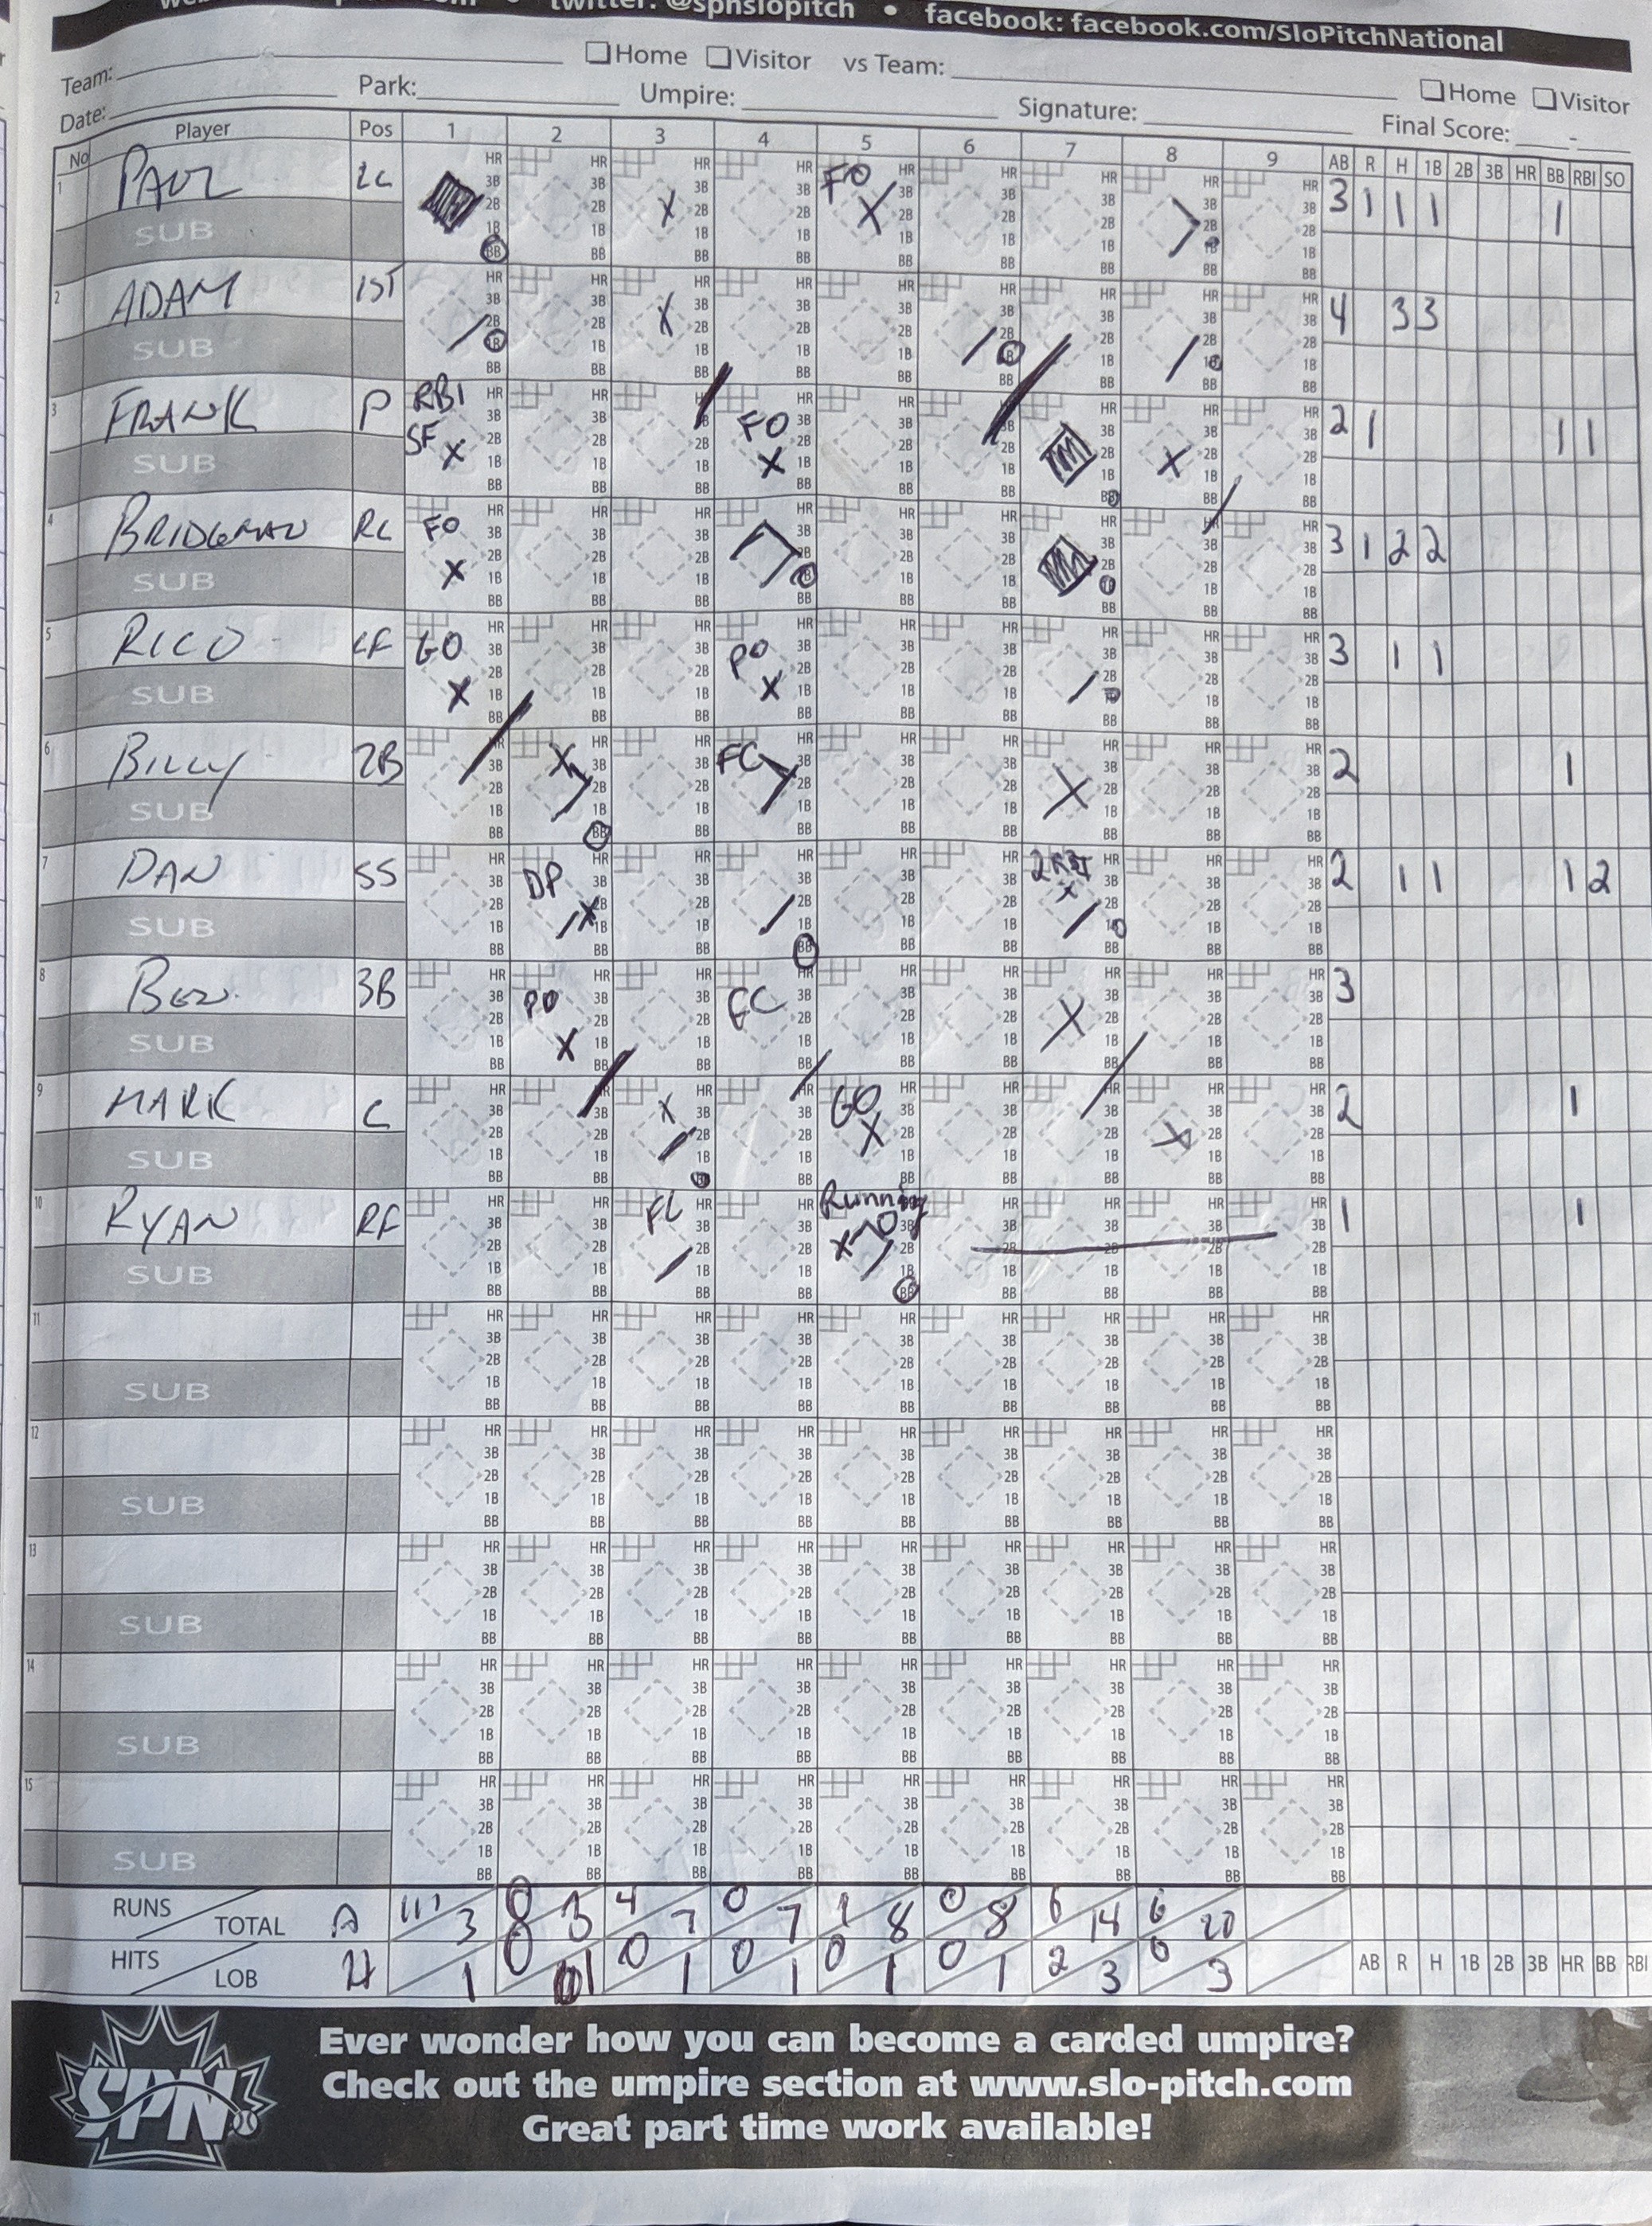 twitter: @spnslopitch • facebook: facebook.com/SloPitchNational
Team: Home Visitor vs Team: Home Visitor
Date: Park: Umpire: Signature: Final Score: -
No Player Pos 1 2 3 4 5 6 7 8 9 AB R H 1B 2B 3B HR BB RBI SO
1 PAUL LC FO 3 1 1 1 1
SUB
2 ADAM 1ST 4 3 3
SUB
3 FRANK P RBI SF X FO X X 2 1 1 1
SUB
4 BRIDGMAN RC FO X 3 1 2 2
SUB
5 RICO LF GO X PO X 3 1 1
SUB
6 BILLY 2B X FC X 2 1
SUB
7 DAN SS DP X 2 RBI X 2 1 1 1 2
SUB
8 BEN 3B PO X FC X 3
SUB
9 MARK C X GO X X 2 1
SUB
10 RYAN RF FC Running X 1 1
SUB
11
SUB
12
SUB
13
SUB
14
SUB
15
SUB
RUNS TOTAL A 111 3 0 3 4 7 0 7 1 8 0 8 6 14 6 20
HITS LOB H 1 0 1 0 1 0 1 0 1 0 1 2 3 0 3 AB R H 1B 2B 3B HR BB RBI
SPN
Ever wonder how you can become a carded umpire?
Check out the umpire section at www.slo-pitch.com
Great part time work available!